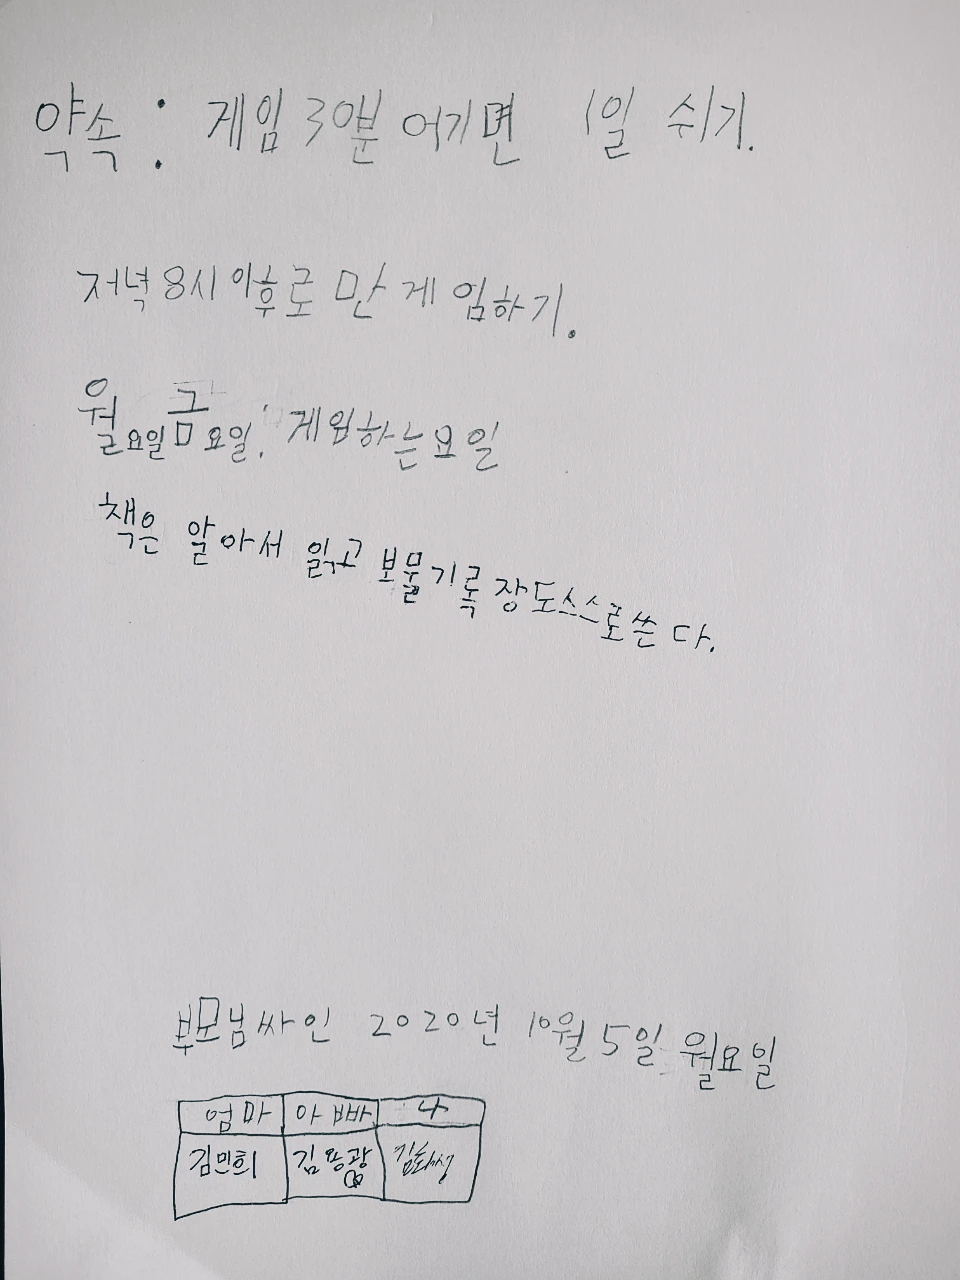 약속: 게임 30분 어기면 1일 쉬기.
저녁 8시 이후로만 게임하기.
월요일 금요일: 게임하는요일
책은 알아서 읽고 보물기록장도 스스로 쓴다.
부모님싸인 2020년 10월 5일 월요일
엄마 아빠 나
김민희 김용광